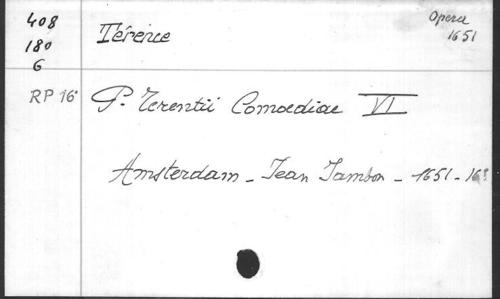 408
180
6
Térence
Opera
1651
RP 16°
P. Terentii Comoediae VI
Amsterdam - Jean Jambon - 1651 - 16°